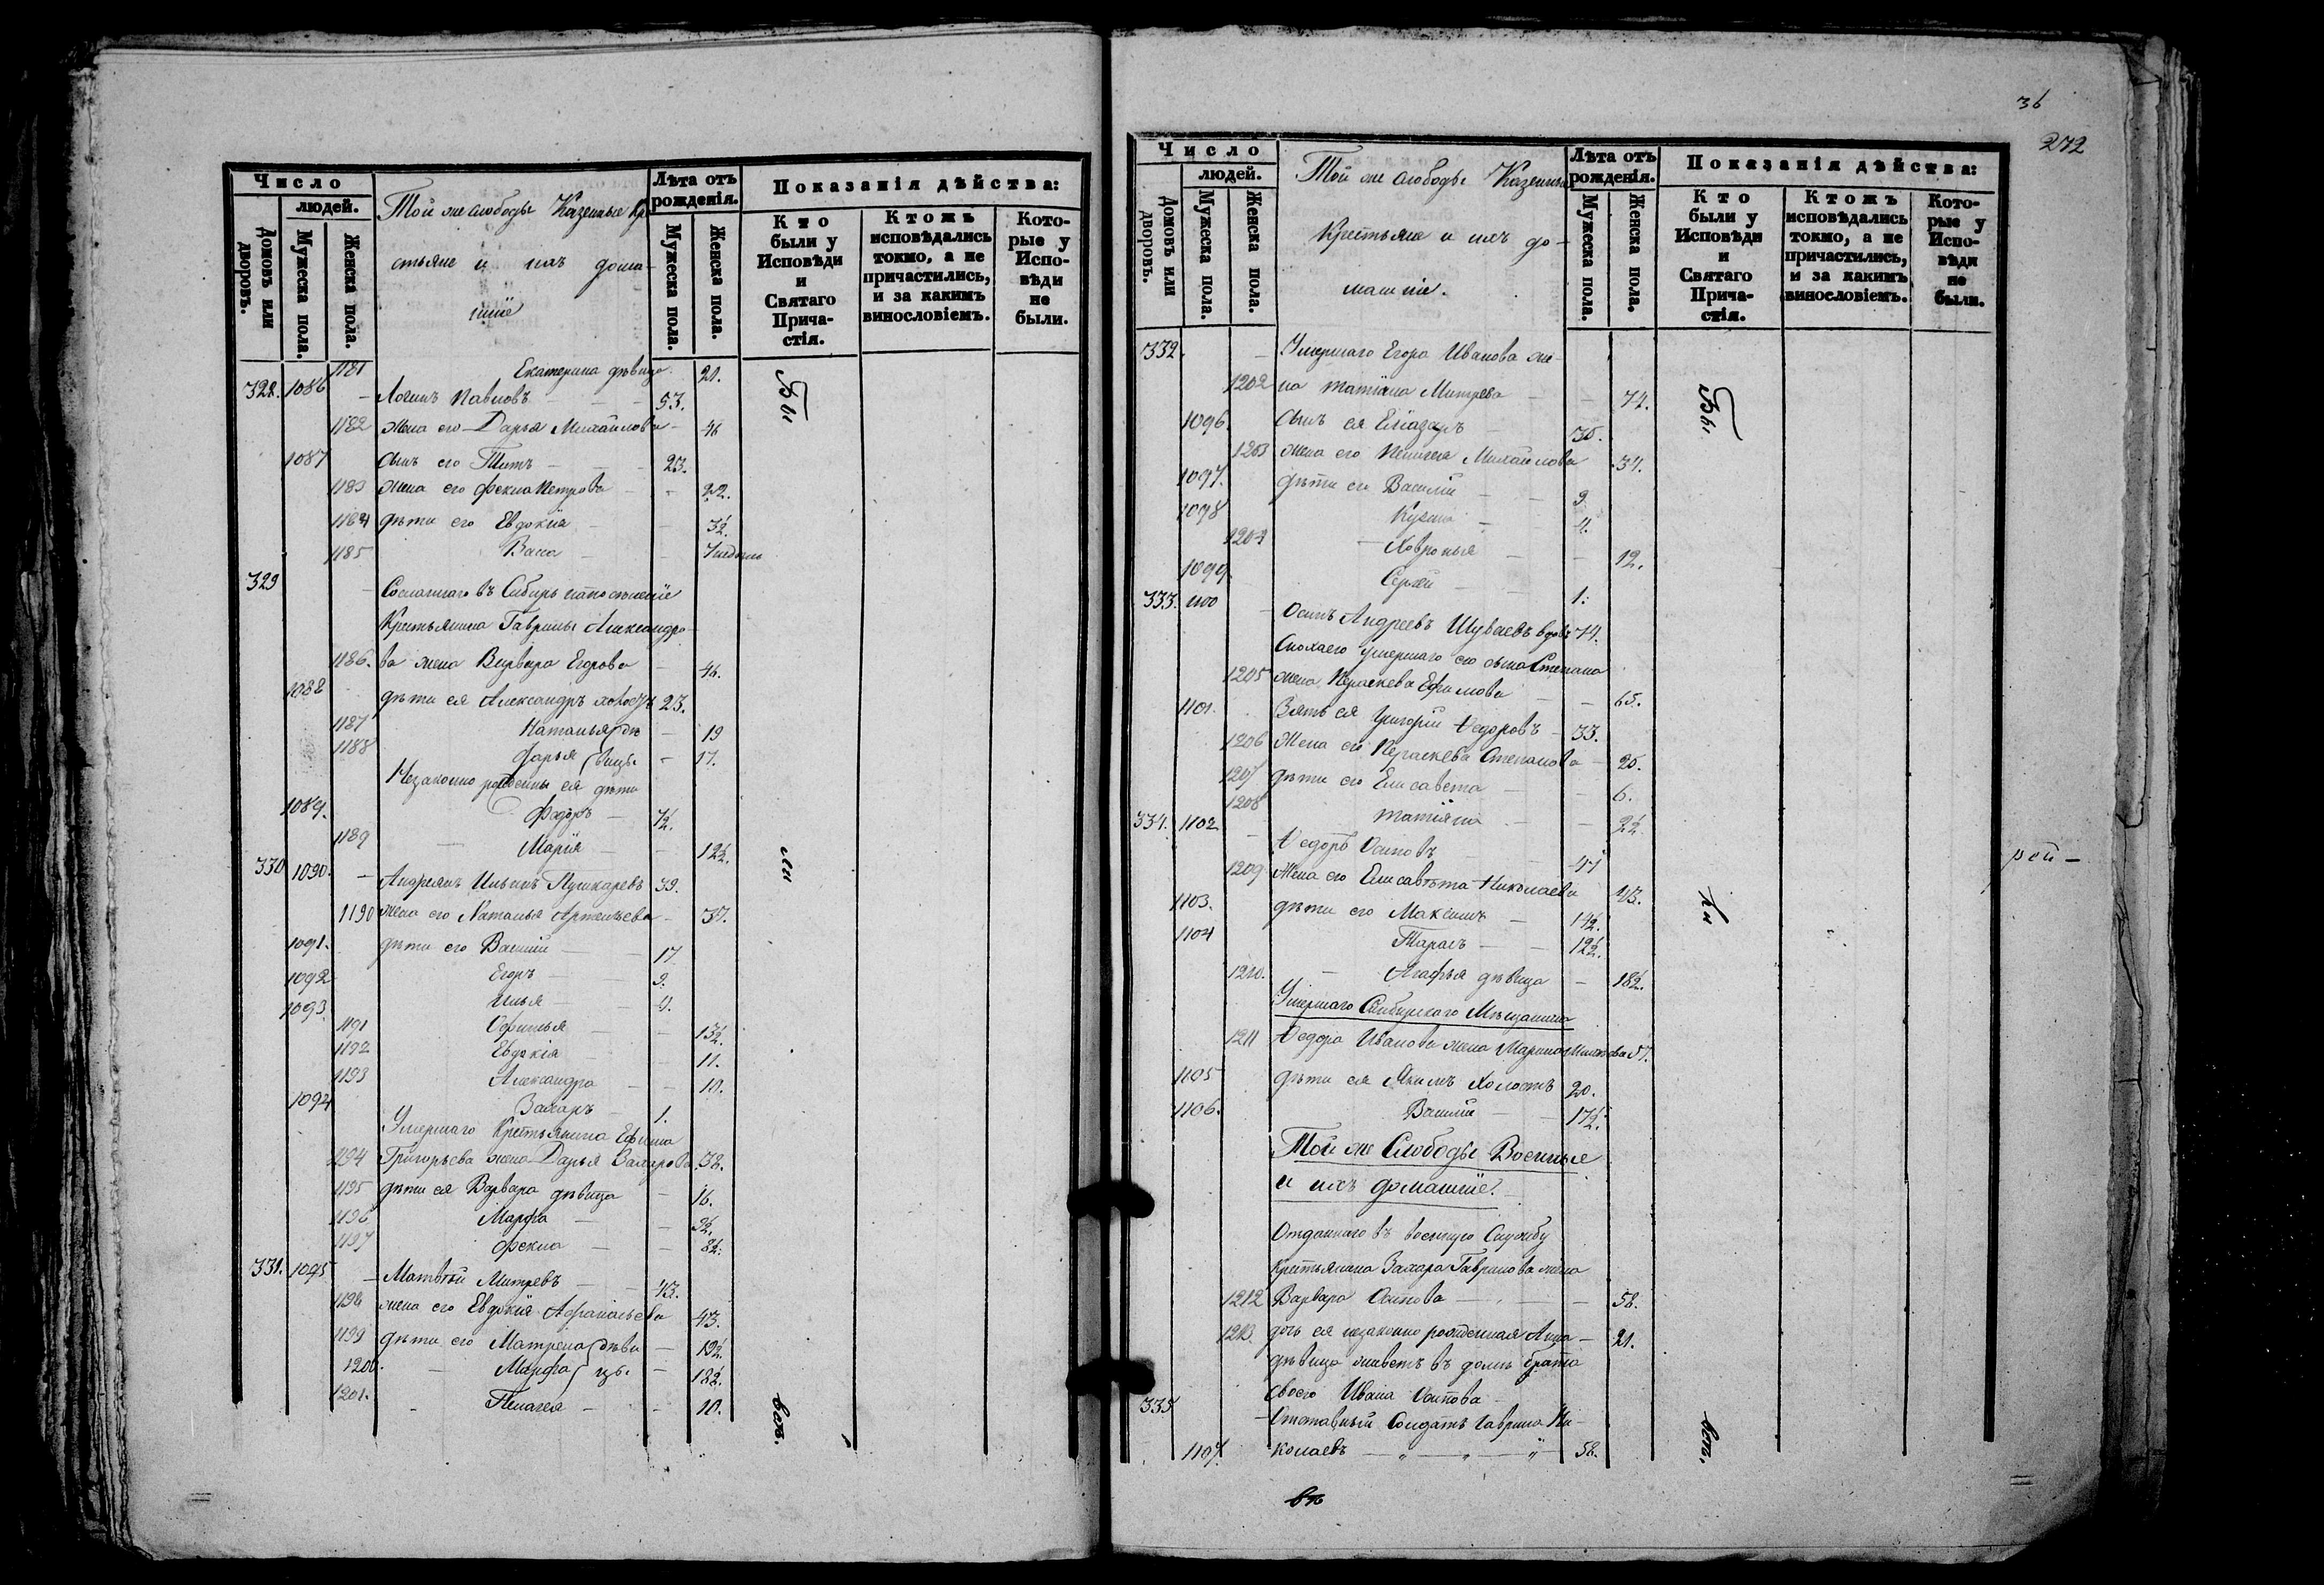 Число
людей.
Домовъ или дворовъ.
Мужеска пола.
Женска пола.
Той же слободы Казенные кре
стьяне и ихъ домаш
ніе
Лѣта отъ рожденія.
Мужеска пола.
Женска пола.
Показанія дѣйства:
Кто были у Исповѣди и Святаго Прича- стія.
Ктожъ исповѣдались токмо, а не причастились, и за какимъ винословіемъ.
Кото- рые у Испо- вѣди не были.
1181 Екатерина дѣвица 21.
328. 1086 Логинъ Павловъ 53.
1182 жена его Дарья Михайлова 46
1087 сынъ его Титъ 23.
1183 жена его Фекла Петрова 22.
1184 дѣти его Евдокія 3½.
1185 Васса
329 Сосланнаго въ Сибирь на поселеніе
Крестьянина Гаврилы Александро
1186. ва жена Варвара Егорова 46.
1088 дѣти ея Александръ холостъ 23.
1187 Наталья дѣ 19
1188 Дарья вицы 17.
Незаконно рожденны ея дѣти
1089. Федоръ ½.
1189 Марія 12½.
330 1090. Андреянъ Ильинъ Пушкаревъ 39.
1190 жена его Наталья Артемьева 37.
1091. дѣти его Василій 17
1092 Егоръ 9.
1093 Илья 4.
1191 Офимья 13½.
1192 Евдокія 11.
1193 Александра 10.
1094 Захаръ 1.
Умершаго Крестьянина Ефима
1194 Григорьева жена Дарья Захарова 38.
1195 дѣти ея Варвара дѣвица 16.
1196 Марфа 9½.
1197 Фекла 8½.
331. 1095 Матвѣй Митревъ 43.
1198 жена его Евдокія Афанасьева 43.
1199 дѣти его Матрена дѣви 19½.
1200. Марфа цы 18½.
1201. Пелагея 10.
Бы
ли
всѣ.
36
272
Число
людей.
Домовъ или дворовъ.
Мужеска пола.
Женска пола.
Той же слободы Казенные
Крестьяне и ихъ до-
машніе.
Лѣта отъ рожденія.
Мужеска пола.
Женска пола.
Показанія дѣйства:
Кто были у Исповѣди и Святаго Прича- стія.
Ктожъ исповѣдались токмо, а не причастились, и за какимъ винословіемъ.
Кото- рые у Испо- вѣди не были.
332. Умершаго Егора Иванова же-
1202 на Татіана Митрева 74.
1096 сынъ ея Еліазаръ 35.
1203 жена его Пелагея Михайлова 34.
1097. дѣти его Василій 9
1098 Кузма 4.
1204 Ховронья 12.
1099. Сергѣй 1.
333. 1100 Осипъ Андреевъ Шуваевъ вдовъ 74.
Сноха его умершаго его сына Степана
1205 жена Параскева Ефимова 65.
1101. Зять ея Григорій Ѳедоровъ 33.
1206 жена его Параскева Степанова 25.
1207 дѣти его Елисавета 6.
1208 Татіяна 2½.
334. 1102 Ѳедоръ Осиповъ 47
1209 жена его Елисавѣта Николаева 43.
1103. дѣти его Максимъ 14½.
1104 Тарасъ 12½.
1210. Агафья дѣвица 18½.
Умершаго Симбирскаго Мѣщанина
1211 Ѳедора Иванова жена Марина 57.
1105 дѣти ея Якимъ холостъ 20.
1106. Василій 17½.
Той же Слободы Военные
и ихъ домашніе.
Отданнаго въ военную Службу
крестьянина Захара Гаврилова жена
1212 Варвара Осипова 58.
1213. дочь ея незаконно рожденная Анна 21.
дѣвица живетъ въ домѣ брата
своего Ивана Осипова
335 Отставный Солдатъ Гаврила Ни-
1107. колаевъ 58.
Бы
ли
всѣ.
рой